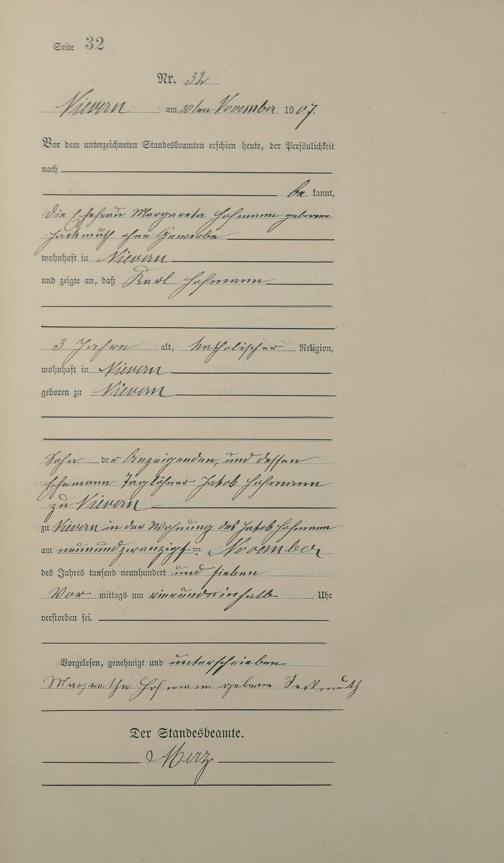 Seite 32
Nr. 32
Nievern am 30ten November 1907.
Vor dem unterzeichneten Standesbeamten erschien heute, der Persönlichkeit
nach
be kannt,
die Ehefrau Margareta Hofmann geborene
ohne Gewerbe
wohnhaft in Nievern
und zeigte an, daß Karl Hofmann
3 Jahre alt, katholischer Religion,
wohnhaft in Nievern
geboren zu Nievern
Sohn der Anzeigenden, und dessen
Ehemann Taglöhner Jakob Hofmann
zu Nievern
zu Nievern in der Wohnung des Jakob Hofmann
am neunundzwanzigsten November
des Jahres tausend neunhundert und sieben
Vor mittags um Uhr
verstorben sei.
Vorgelesen, genehmigt und unterschrieben
Margretha Hofmann geborne
Der Standesbeamte.
Merz